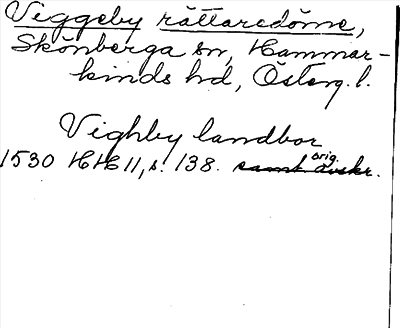 Viggeby rättaredöme,
Skönberga sn, Hammar-
kinds hd, Österg. l.
Vighby landbor
1530 HH 11, s. 138. samt orig. avskr.